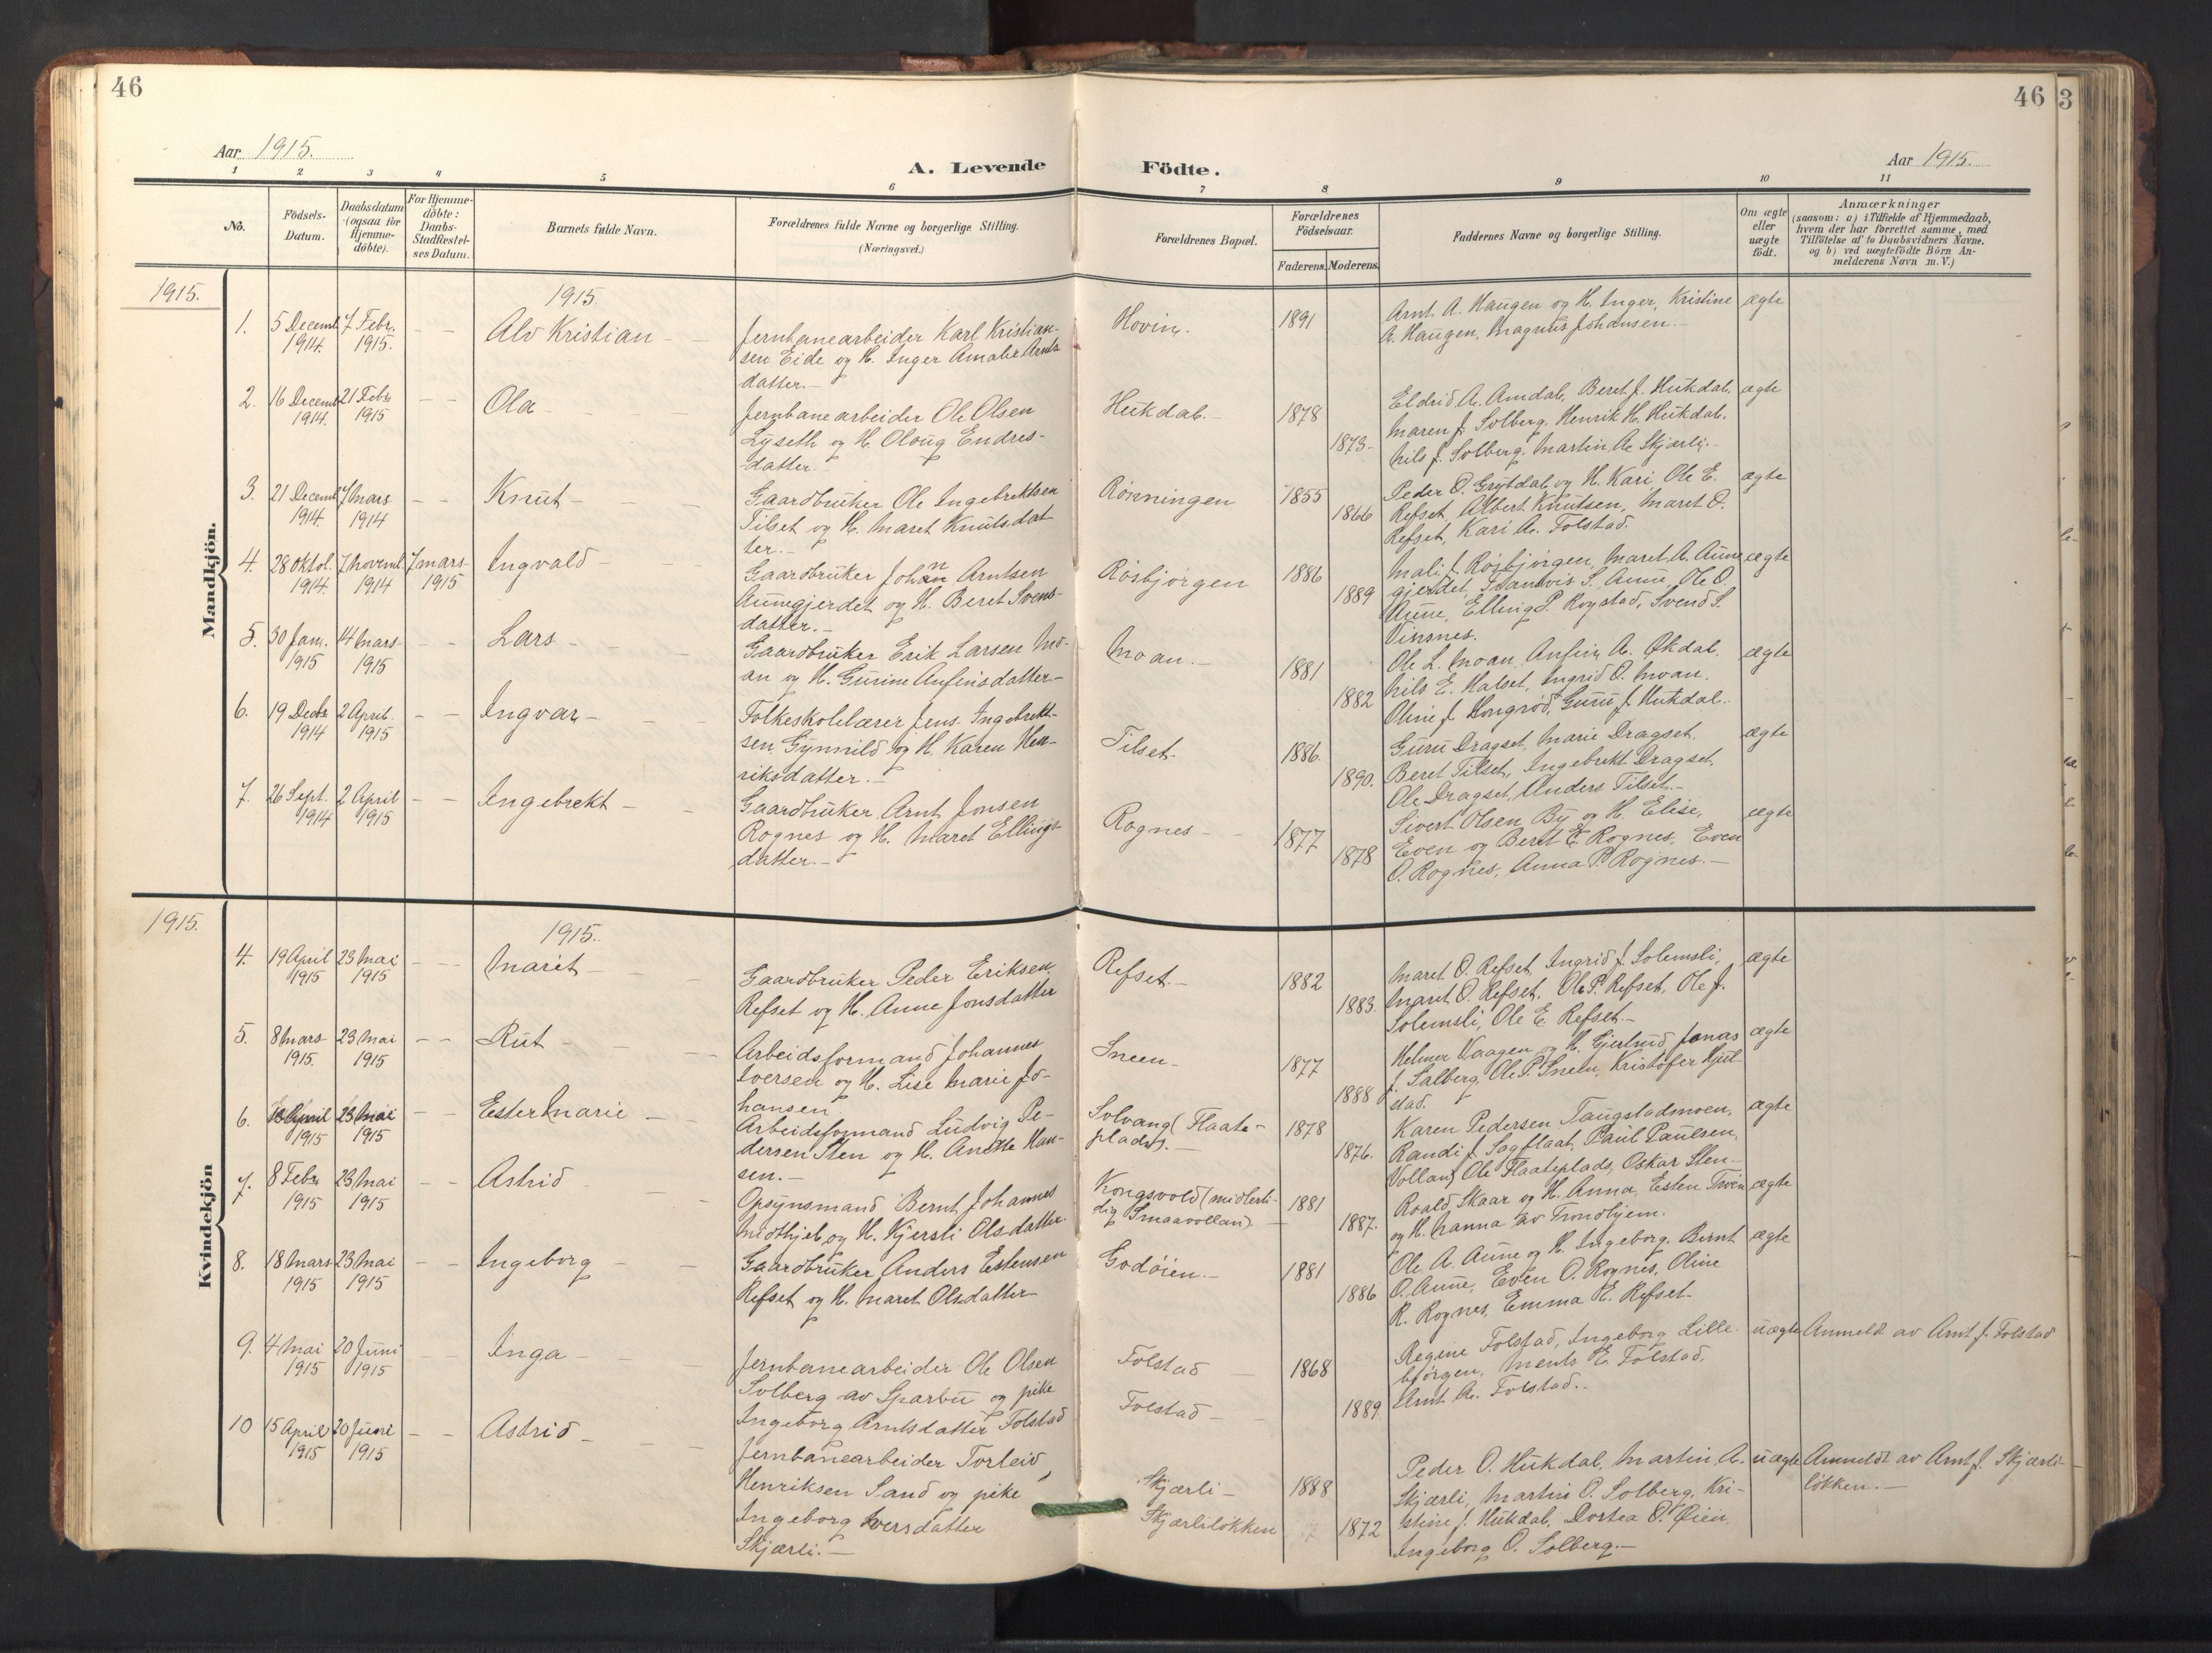 46
46
3
Aar 1915.
A. Levende Födte.
Aar 1915.
1 2 3 4 5 6 7 8 9 10 11
No.
Födsels-
Datum.
Daabsdatum
(ogsaa for
Hjemme-
döbte).
For Hjemme-
döbte:
Daabs-
Stadfæstel-
ses Datum.
Barnets fulde Navn.
Forældrenes fulde Navne og borgerlige Stilling.
(Næringsvei.)
Forældrenes Bopæl.
Forældrenes
Födselsaar.
Faderens. Moderens.
Faddernes Navne og borgerlige Stilling.
Om ægte
eller
uægte
födt.
Anmærkninger
(saasom: a) i Tilfælde af Hjemmedaab,
hvem der har forrettet samme, med
Tilföielse af to Daabsvidners Navne,
og b) ved uægtefödte Börn An-
melderens Navn m. V.)
Mandkjön.
1915.
1915
1. 5 Decemb. 1914. 7 Febr. 1915. - - Alv Kristian -
Jernbanearbeider Karl Kristian-
sen Eide og H. Inger Amalie Arnts
datter. -
Hovin. 1891
Arnt A. Haugen og H. Inger, Kristine
A. Haugen, Magnus Johansen. -
ægte
2. 16 Decemb. 1914. 21 Febr 1915 - - Ola -
Jernbanearbeider Ole Olsen
Lyseth og H. Oloug Endres-
datter. -
Hukdal. - 1878 1873-
Eldrid A. Amdal, Beret J. Hukdal.
Maren J. Solberg. Henrik H. Hukdal.
Nils J. Solberg, Martin A. Skjærli. -
ægte
3. 21 Decemb 1914. 7 Mars 1914 - - Knut -
Gaardbruker Ole Ingebrektsen
Tilset og H. Maret Knutsdat
ter. -
Rönningen 1855 1866
Peder O. Grytdal og H. Kari, Ole E.
Refset, Albert Knutsen, Maret O.
Refset, Kari A. Folstad.
ægte
4. 28 Oktob. 1914. 7 Novemb. 1914 7 Mars 1915 Ingvald -
Gaardbruker Johan Arntsen
Aunegjerdet og H. Beret Svens-
datter. -
Røsbjørgen 1886 1889
Mali J. Røsbjørgen, Maret A. Aune
gjerdet, S. Aune, Ole O.
Aune, Elling P. Rogstad, Svend S.
Vinsnes.
ægte
5. 30 Jan. 1915 14 Mars 1915 - - Lars -
Gaardbruker Erik Larsen Mo-
an og H. Gurine Anfinsdatter. -
Moan. - 1881 1882
Ole L. Moan, Anfin A. Økdal.
Nils E. Halset, Ingrid O. Moan.
Oline J. Hongrød, Guru J. Hukdal.
ægte
6. 19 Decbr 1914 2 April. 1915 - - Ingvar -
Folkeskolelærer Jens Ingebrekt-
sen Gynnild og H. Karen Hen-
riksdatter. -
Tilset. 1886. 1890.
Guru Dragset, Marie Dragset.
Beret Tilset, Ingebrekt Dragset,
Ole Dragset, Anders Tilset. -
ægte
7. 26 Sept. 1914 2 April 1915 - - Ingebrekt -
Gaardbruker Arnt Jonsen
Rognes og H. Maret Ellings-
datter. -
Rognes - 1877 1878
Sivert Olsen By og H. Elise,
Even og Beret E. Rognes, Even
O. Rognes, Anna P. Rognes. -
ægte
Kvindekjön
1915.
1915.
4. 19 April 1915 23 Mai 1915 - - Marit -
Gaardbruker Peder Eriksen
Refset og H. Anne Jonsdatter
Refset. - 1882 1883.
Maret O. Refset, Ingrid J. Solemsli,
Marit O. Refset. Ole P. Refset. Ole J.
Solemsli, Ole E. Refset. -
ægte
5. 8 Mars 1915. 23 Mai 1915 - - Rut -
Arbeidsformand Johannes
Iversen og H. Lise Marie Jo-
hansen
Sneen - 1877 1888
Helmer Vaagen og H. Gjertrud, Jonas
J. Salberg, Ole P. Sneen, Kristofer Hjul
stad.
ægte
6. April 1915 23 Mai 1915 - - Ester Marie -
Arbeidsformand Ludvig Pe-
dersen Sten og H. Anette Han-
sen. -
Solvang (Flaate-
plads). - 1878 1876.
Karen Pedersen Taugstadmoen,
Randi J. Sagflaat, Paul Paulsen,
Volland, Ole Flaateplads, Oskar Sten. -
ægte
7. 8 Febr 1915 23 Mai 1915 - - Astrid
Opsynsmand Bernt Johannes
Midthjel og H. Kjersti Olsdatter.
Kongsvold (midlerti-
dig Smaavollan) - 1881 1887.
Roald Skaar og H. Anna, Esten Trøen
og H. Nanna av Trondhjem.
ægte
8. 18 Mars 1915 23 Mai 1915 - - Ingeborg -
Gaardbruker Anders Estensen
Refset og H. Maret Olsdatter -
Godöien. - 1881 1886
Ole A. Aune og H. Ingeborg. Bernt
O. Aune, Even O. Rognes, Oline
R. Rognes, Emma E. Refset.
ægte
9. 4 Mai 1915 20 Juni 1915 - - Inga -
Jernbanearbeider Ole Olsen
Solberg av Sparbu og pike
Ingeborg Arntsdatter Folstad
Folstad - 1868
Folstad - 1889
Regine Folstad, Ingeborg Lille-
bjørgen, Ments E. Folstad,
Arnt A. Folstad. -
uægte
Anmeldt av Arnt J. Folstad
10 15 April 1915 20 Juni 1915 - - Astrid -
Jernbanearbeider Torleiv
Henriksen Sand og pike
Ingeborg Iversdatter
Skjærli. -
Skjærli - 1888
Skjærlilökken 1872
Peder O. Hukdal, Martin A.
Skjærli, Martin O. Solberg, Kri-
stine J. Hukdal, Dortea O. Øien,
Ingeborg O. Solberg. -
uægte
Anmeldt av Arnt J. Skjærli-
lökken. -